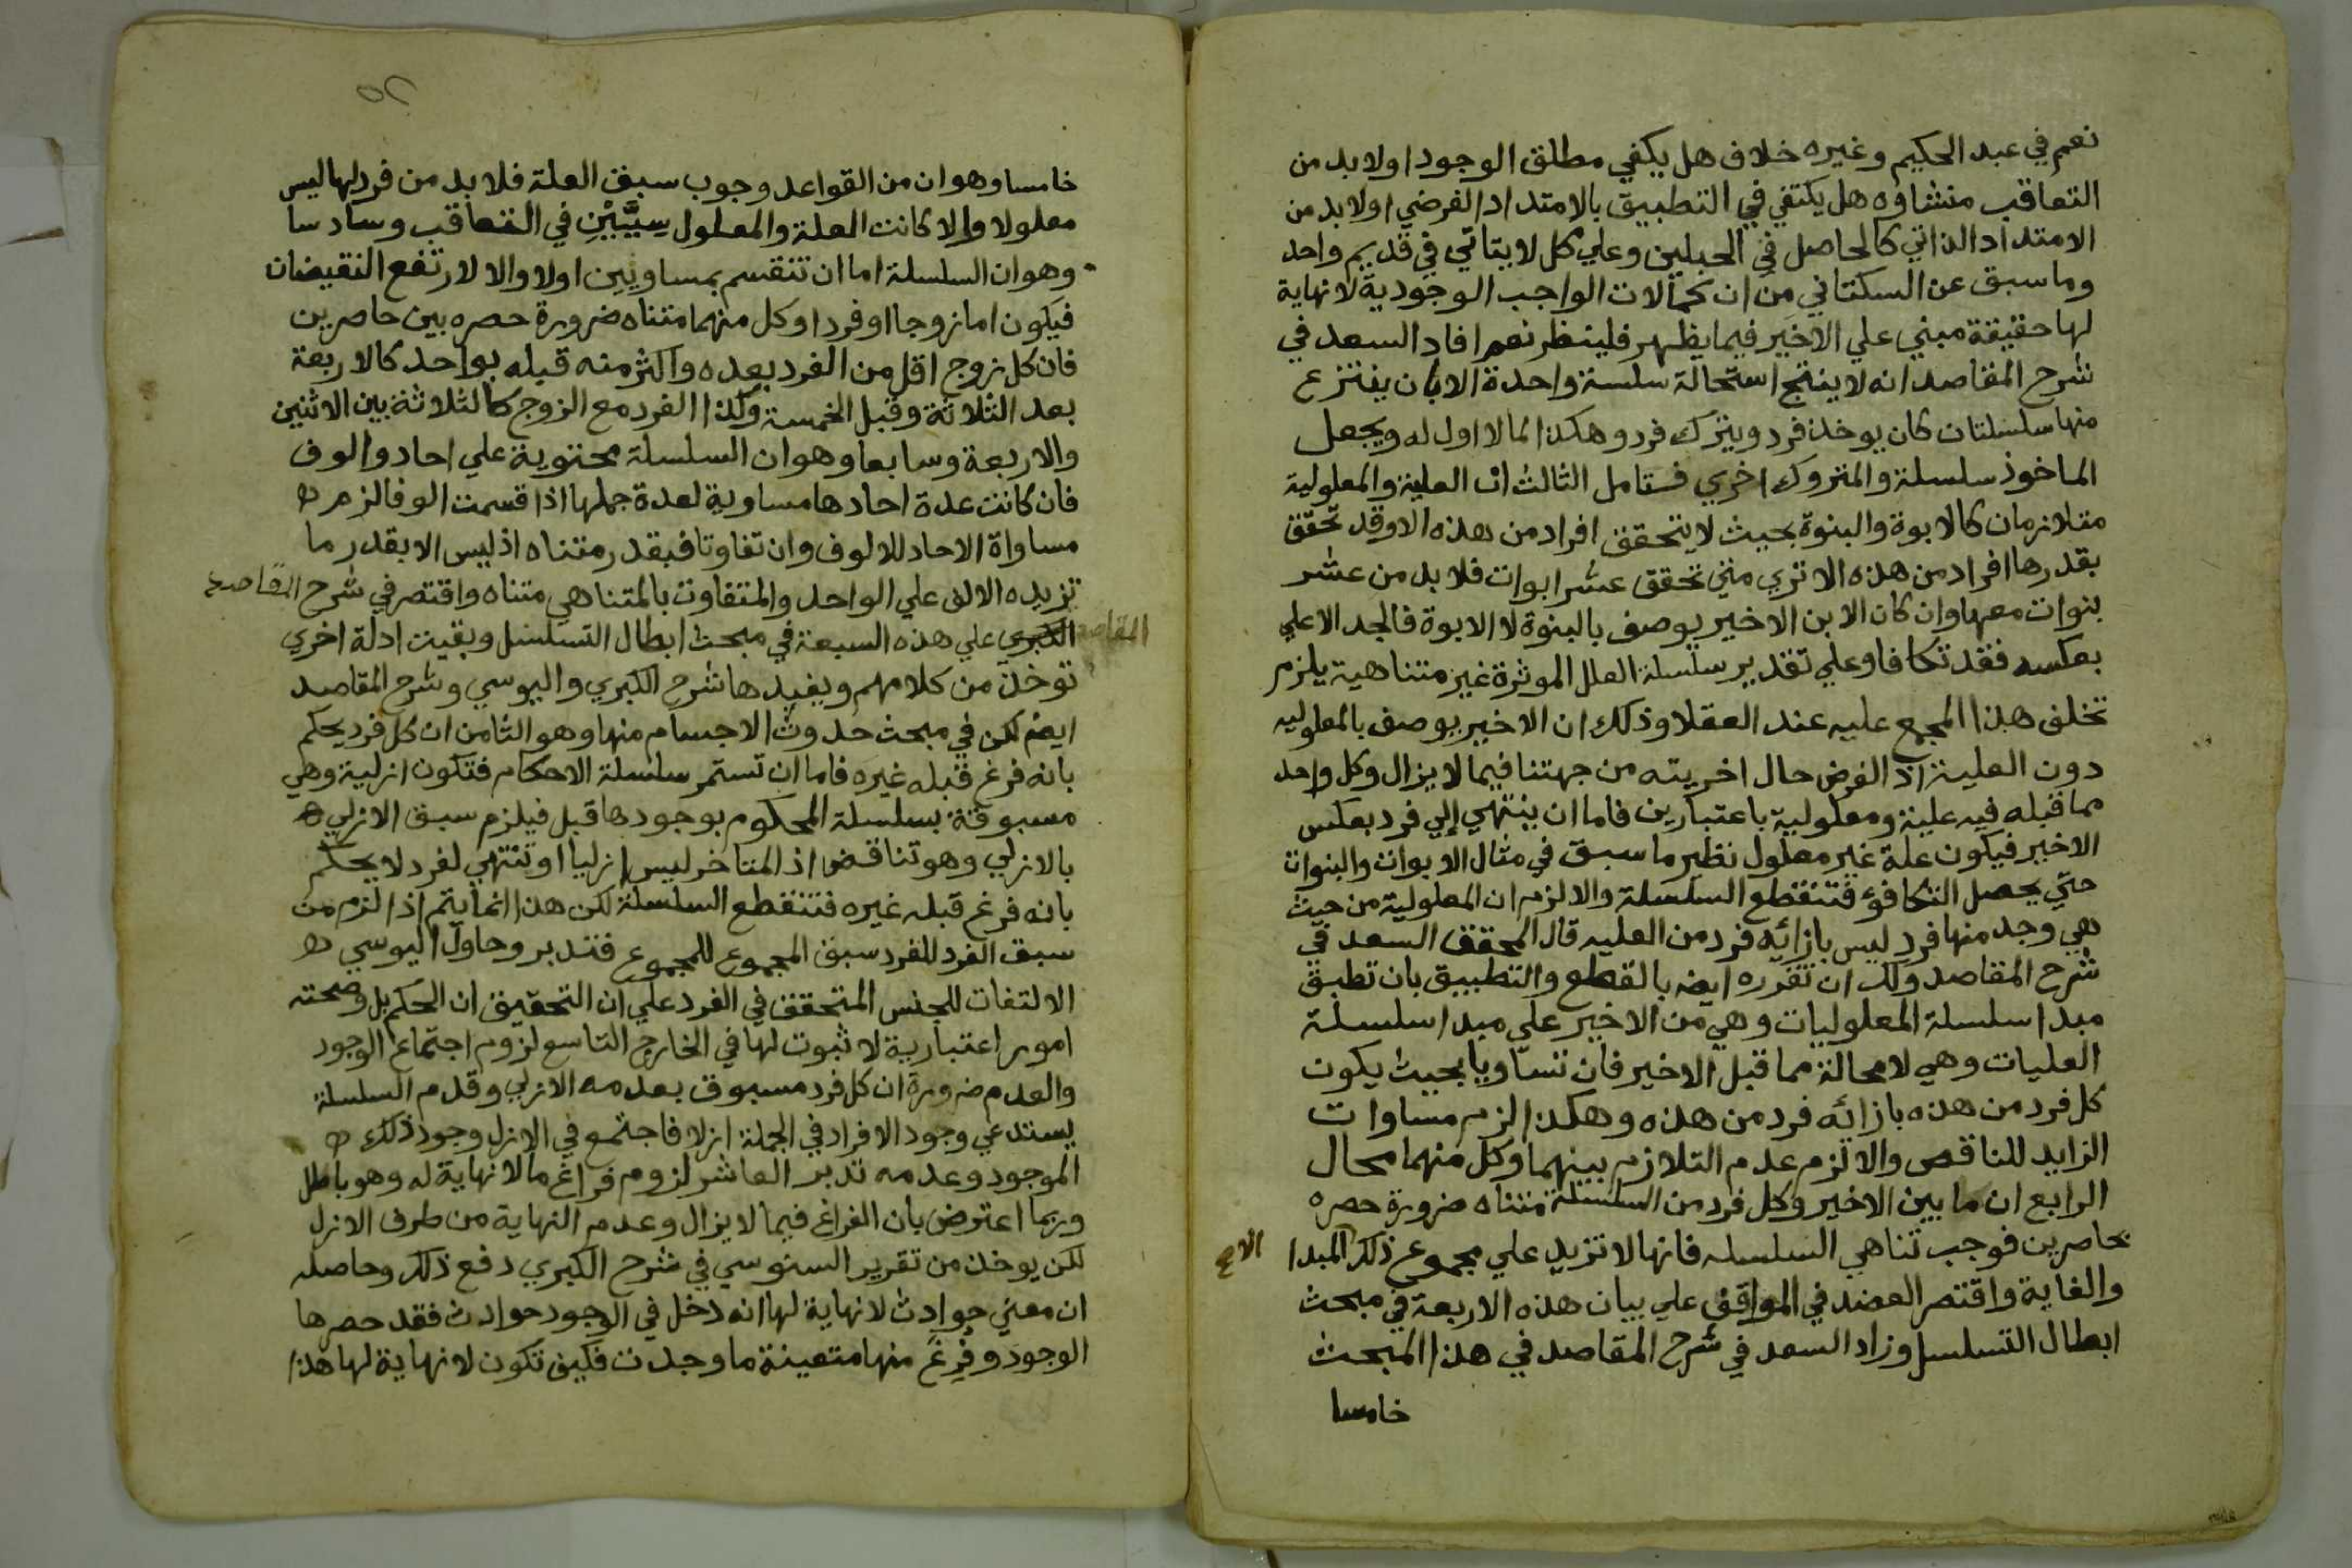 نعم في عبد الحكيم وغيره خلاف هل يكفي مطلق الوجود اولا بد من
التعاقب منشاؤه هل يكتفي في التطبيق بالامتداد الفرضي اولا بد من
الامتداد الذاتي كالحاصل في الحبلين وعلي كل لا يتاتي في قديم واحد
وما سبق عن السكتاني من ان كمالات الواجب الوجودية لا نهاية
لها حقيقة مبني علي الاخير فيما يظهر فلينظر نعم افاد السعد في
شرح المقاصد انه لا ينتج استحالة سلسة واحدة الا بان ينتزع
منها سلسلتان كان يوخذ فرد ويترك فرد وهكذا لما لا اول له ويجعل
الماخوذ سلسلة والمتروك اخري فستامل الثالث ان العلية والمعلولية
متلازمان كالابوة والبنوة بحيث لا يتحقق افراد من هذه الا وقد تحقق
بقدرها افراد من هذه الا تري متي تحقق عشر ابوات فلا بد من عشر
بنوات معها وان كان الابن الاخير يوصف بالبنوة لا الابوة فالجد الاعلي
بعكسه فقد تكافا وعلي تقدير سلسلة العلل الموثرة غير متناهية يلزم
تخلف هذا المجمع عليه عند العقلا وذلك ان الاخير يوصف بالمعلوليه
دون العلية اذ الفرض حال اخريته من جهتنا فيما لا يزال وكل واحد
مما قبله فيه علية ومعلولية باعتبارين فاما ان ينتهي إلي فرد بعكس
الاخير فيكون علة غير معلول نظير ما سبق في مثال الابوات والبنوات
حتي يحصل التكافؤ فتنقطع السلسلة والا لزم ان المعلولية من حيث
هي وجد منها فرد ليس بازائه فرد من العليه قال المحقق السعد في
شرح المقاصد ولك ان تقرره ايضا بالقطع والتطبيق بان تطبق
مبدا سلسلة المعلوليات وهي من الاخير علي مبدا سلسلة
العليات وهي لا محالة مما قبل الاخير فان تساويا بحيث يكون
كل فرد من هذه بازائه فرد من هذه وهكذا لزم مساوات
الزايد للناقص والا لزم عدم التلازم بينهما وكل منهما محال
الرابع ان ما بين الاخير وكل فرد من السلسلة متناه ضرورة حصره
بحاصرين فوجب تناهي السلسله فانها لا تزيد علي مجموع ذلك المبدا
والغاية واقتصر العضد في المواقف علي بيان هذه الاربعة في مبحث
ابطال التسلسل وزاد السعد في شرح المقاصد في هذا المبحث
خامسا
خامسا وهو ان من القواعد وجوب سبق العلة فلا بد من فرد لها ليس
معلولا والا كانت العلة والمعلول سِيَّيْنِ في التعاقب وسادسا
وهو ان السلسلة اما ان تنقسم بمساويين اولا والا لارتفع النقيضان
فيكون اما زوجا او فردا وكل منهما متناه ضرورة حصره بين حاصرين
فان كل زوج اقل من الفرد بعده واكثر منه قبله بواحد كالاربعة
بعد الثلاثة وقبل الخمسة وكذا الفرد مع الزوج كالثلاثة بين الاثنين
والاربعة وسابعا وهو ان السلسلة محتوية علي احاد والوف
فان كانت عدة احادها مساوية لعدة جملها اذا قسمت الوفا لزم
مساواة الاحاد للالوف وان تفاوتا فبقدر متناه اذ ليس الا بقدر ما
تزيده الالف علي الواحد والمتفاوت بالمتناهي متناه واقتصر في شرح المقاصد
الكبري علي هذه السبعة في مبحث ابطال التسلسل وبقيت ادلة اخري
المقاصد
توخذ من كلامهم ويفيدها شرح الكبري واليوسي وشرح المقاصد
ايضا لكن في مبحث حدوث الاجسام منها وهو الثامن ان كل فرد يحكم
بانه فرغ قبله غيره فاما ان تستمر سلسلة الاحكام فتكون ازلية وهي
مسبوقة بسلسلة المحكوم بوجودها قبل فيلزم سبق الازلي
بالازلي وهو تناقض اذ المتاخر ليس ازليا او تنتهي لفرد لا يحكم
بانه فرغ قبله غيره فتنقطع السلسلة لكن هذا انما يتم اذا لزم من
سبق الفرد للفرد سبق المجموع للمجموع فتدبر وحاول اليوسي
الالتفات للجنس المتحقق في الفرد علي ان التحقيق ان الحكم بل وصحته
امور اعتبارية لا ثبوت لها في الخارج التاسع لزوم اجتماع الوجود
والعدم ضرورة ان كل فرد مسبوق بعدمه الازلي وقدم السلسلة
يستدعي وجود الافراد في الجملة ازلا فاجتمع في الازل وجود ذلك
الموجود وعدمه تدبر العاشر لزوم فراغ ما لا نهاية له وهو باطل
وربما اعترض بان الفراغ فيما لا يزال وعدم النهاية من طرف الازل
لكن يوخذ من تقرير السنوسي في شرح الكبري دفع ذلك وحاصله
ان معني حوادث لا نهاية لها انه دخل في الوجود حوادث فقد حصرها
الوجود وفُرِغَ منها متعينة ما وجدت فكيف تكون لا نهاية لها هذا